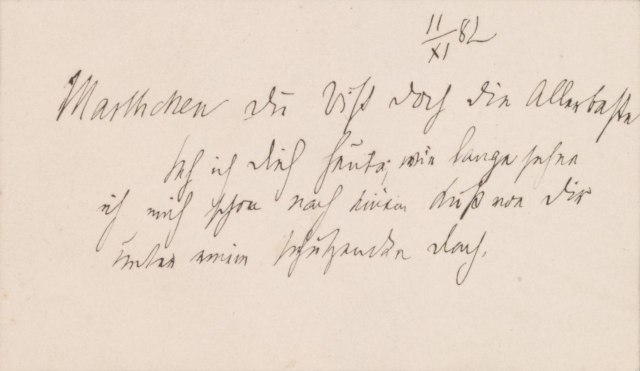 11/XI 82
Marthchen du bist doch die Allerbeste
Seh ich dich heute; wie lange sehne
ich mich schon nach einem Kuß von Dir
unter einem schützenden Dach.